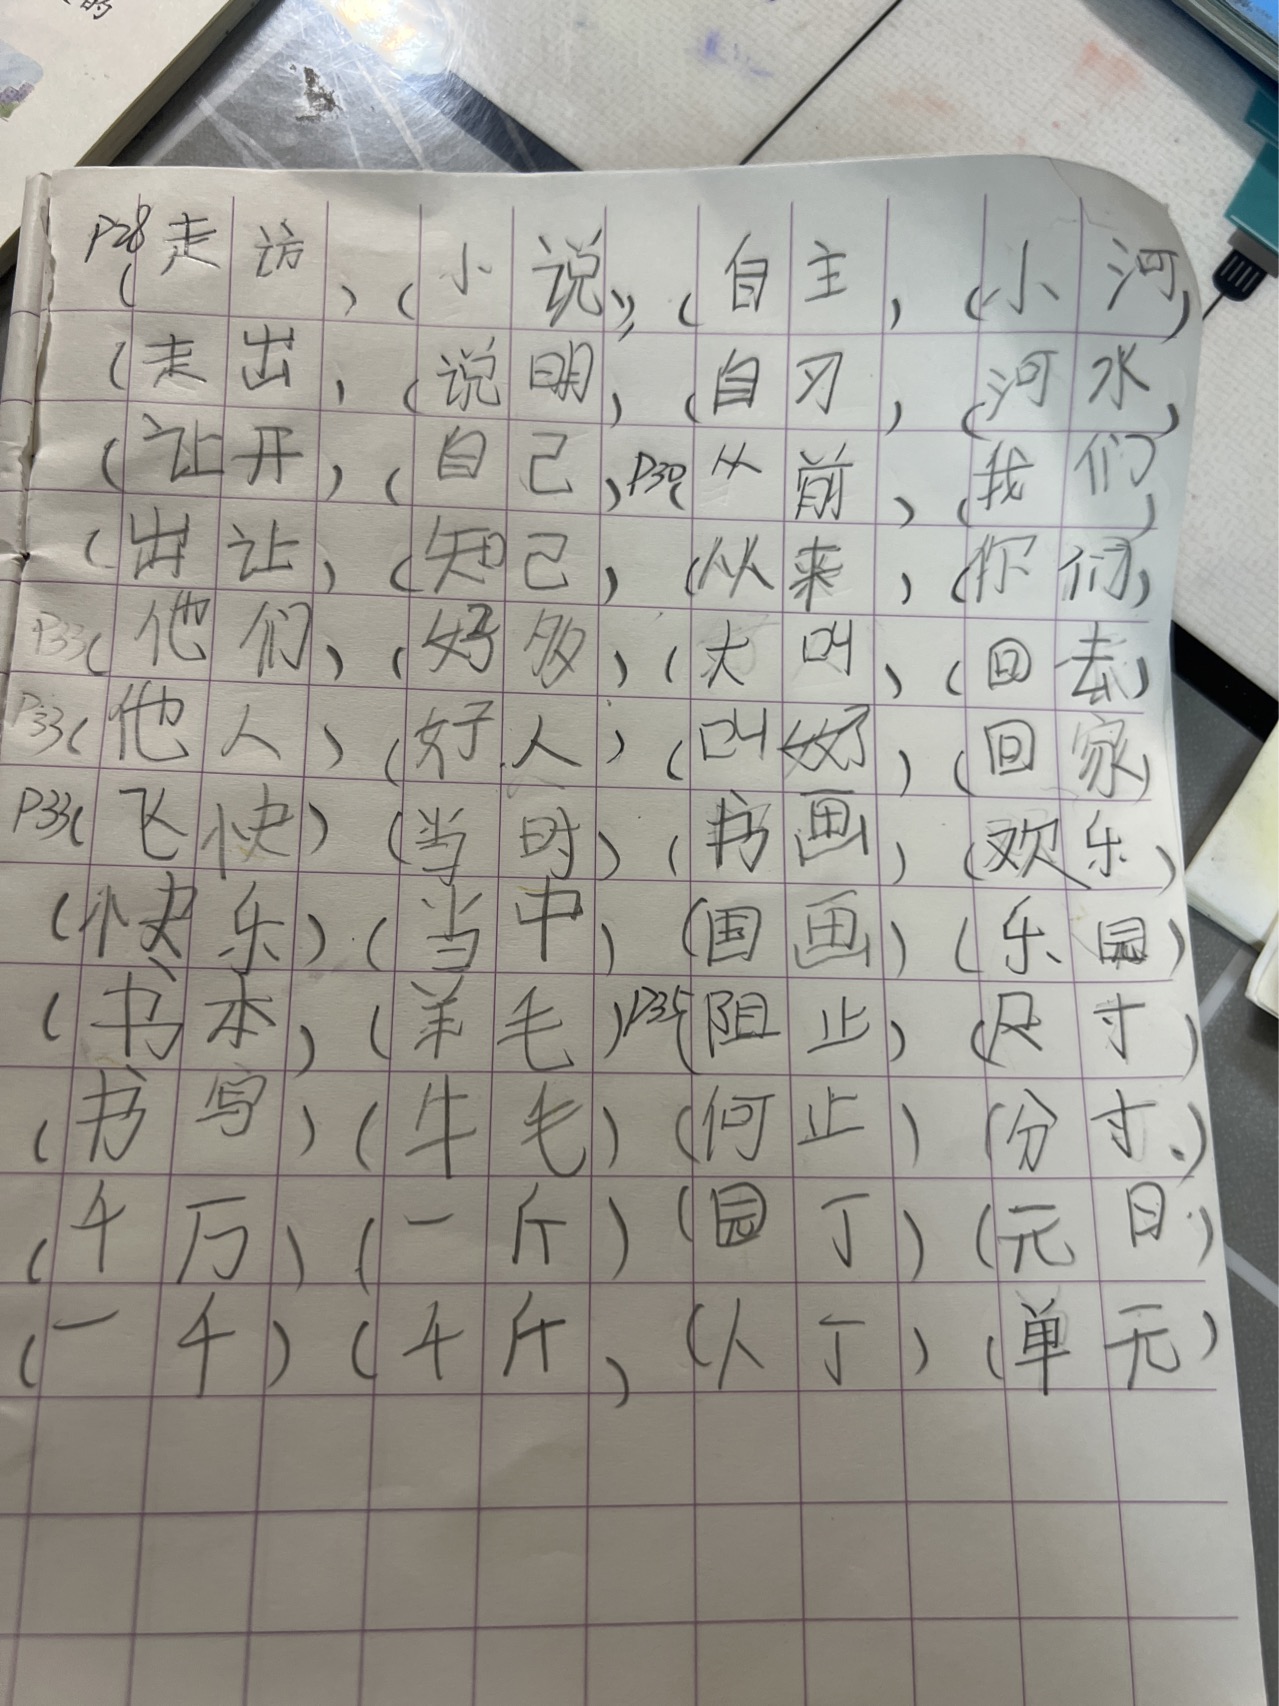 的
P28(走访)(小说)(自主)(小河)
(走出)(说明)(自习)(河水)
(让开)(自己)P30(从前)(我们)
(出让)(知己)(从来)(你们)
P33(他们)(好多)(大叫)(回去)
P33(他人)(好人)(叫好)(回家)
P33(飞快)(当时)(书画)(欢乐)
(快乐)(当中)(国画)(乐园)
(书本)(羊毛)P35(阻止)(尺寸)
(书写)(牛毛)(何止)(分寸)
(千万)(一斤)(园丁)(元日)
(一千)(千斤)(人丁)(单元)